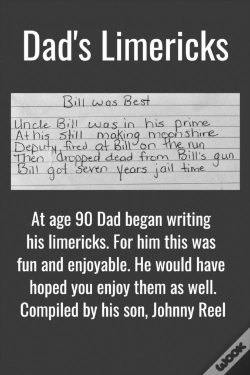 Dad's Limericks
Bill was Best
Uncle Bill was in his prime
At his still making moonshine
Deputy fired at Bill on the run
Then dropped dead from Bill's gun
Bill got seven years jail time
At age 90 Dad began writing
his limericks. For him this was
fun and enjoyable. He would have
hoped you enjoy them as well.
Compiled by his son, Johnny Reel
wook